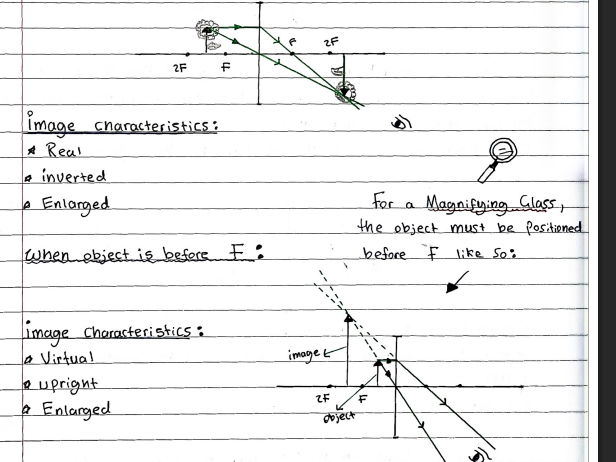 F
2F
2F
F
image characteristics:
Real
inverted
Enlarged
For a Magnifying Glass,
the object must be positioned
before F like so:
when object is before F:
image characteristics:
Virtual
upright
Enlarged
image
2F
F
object